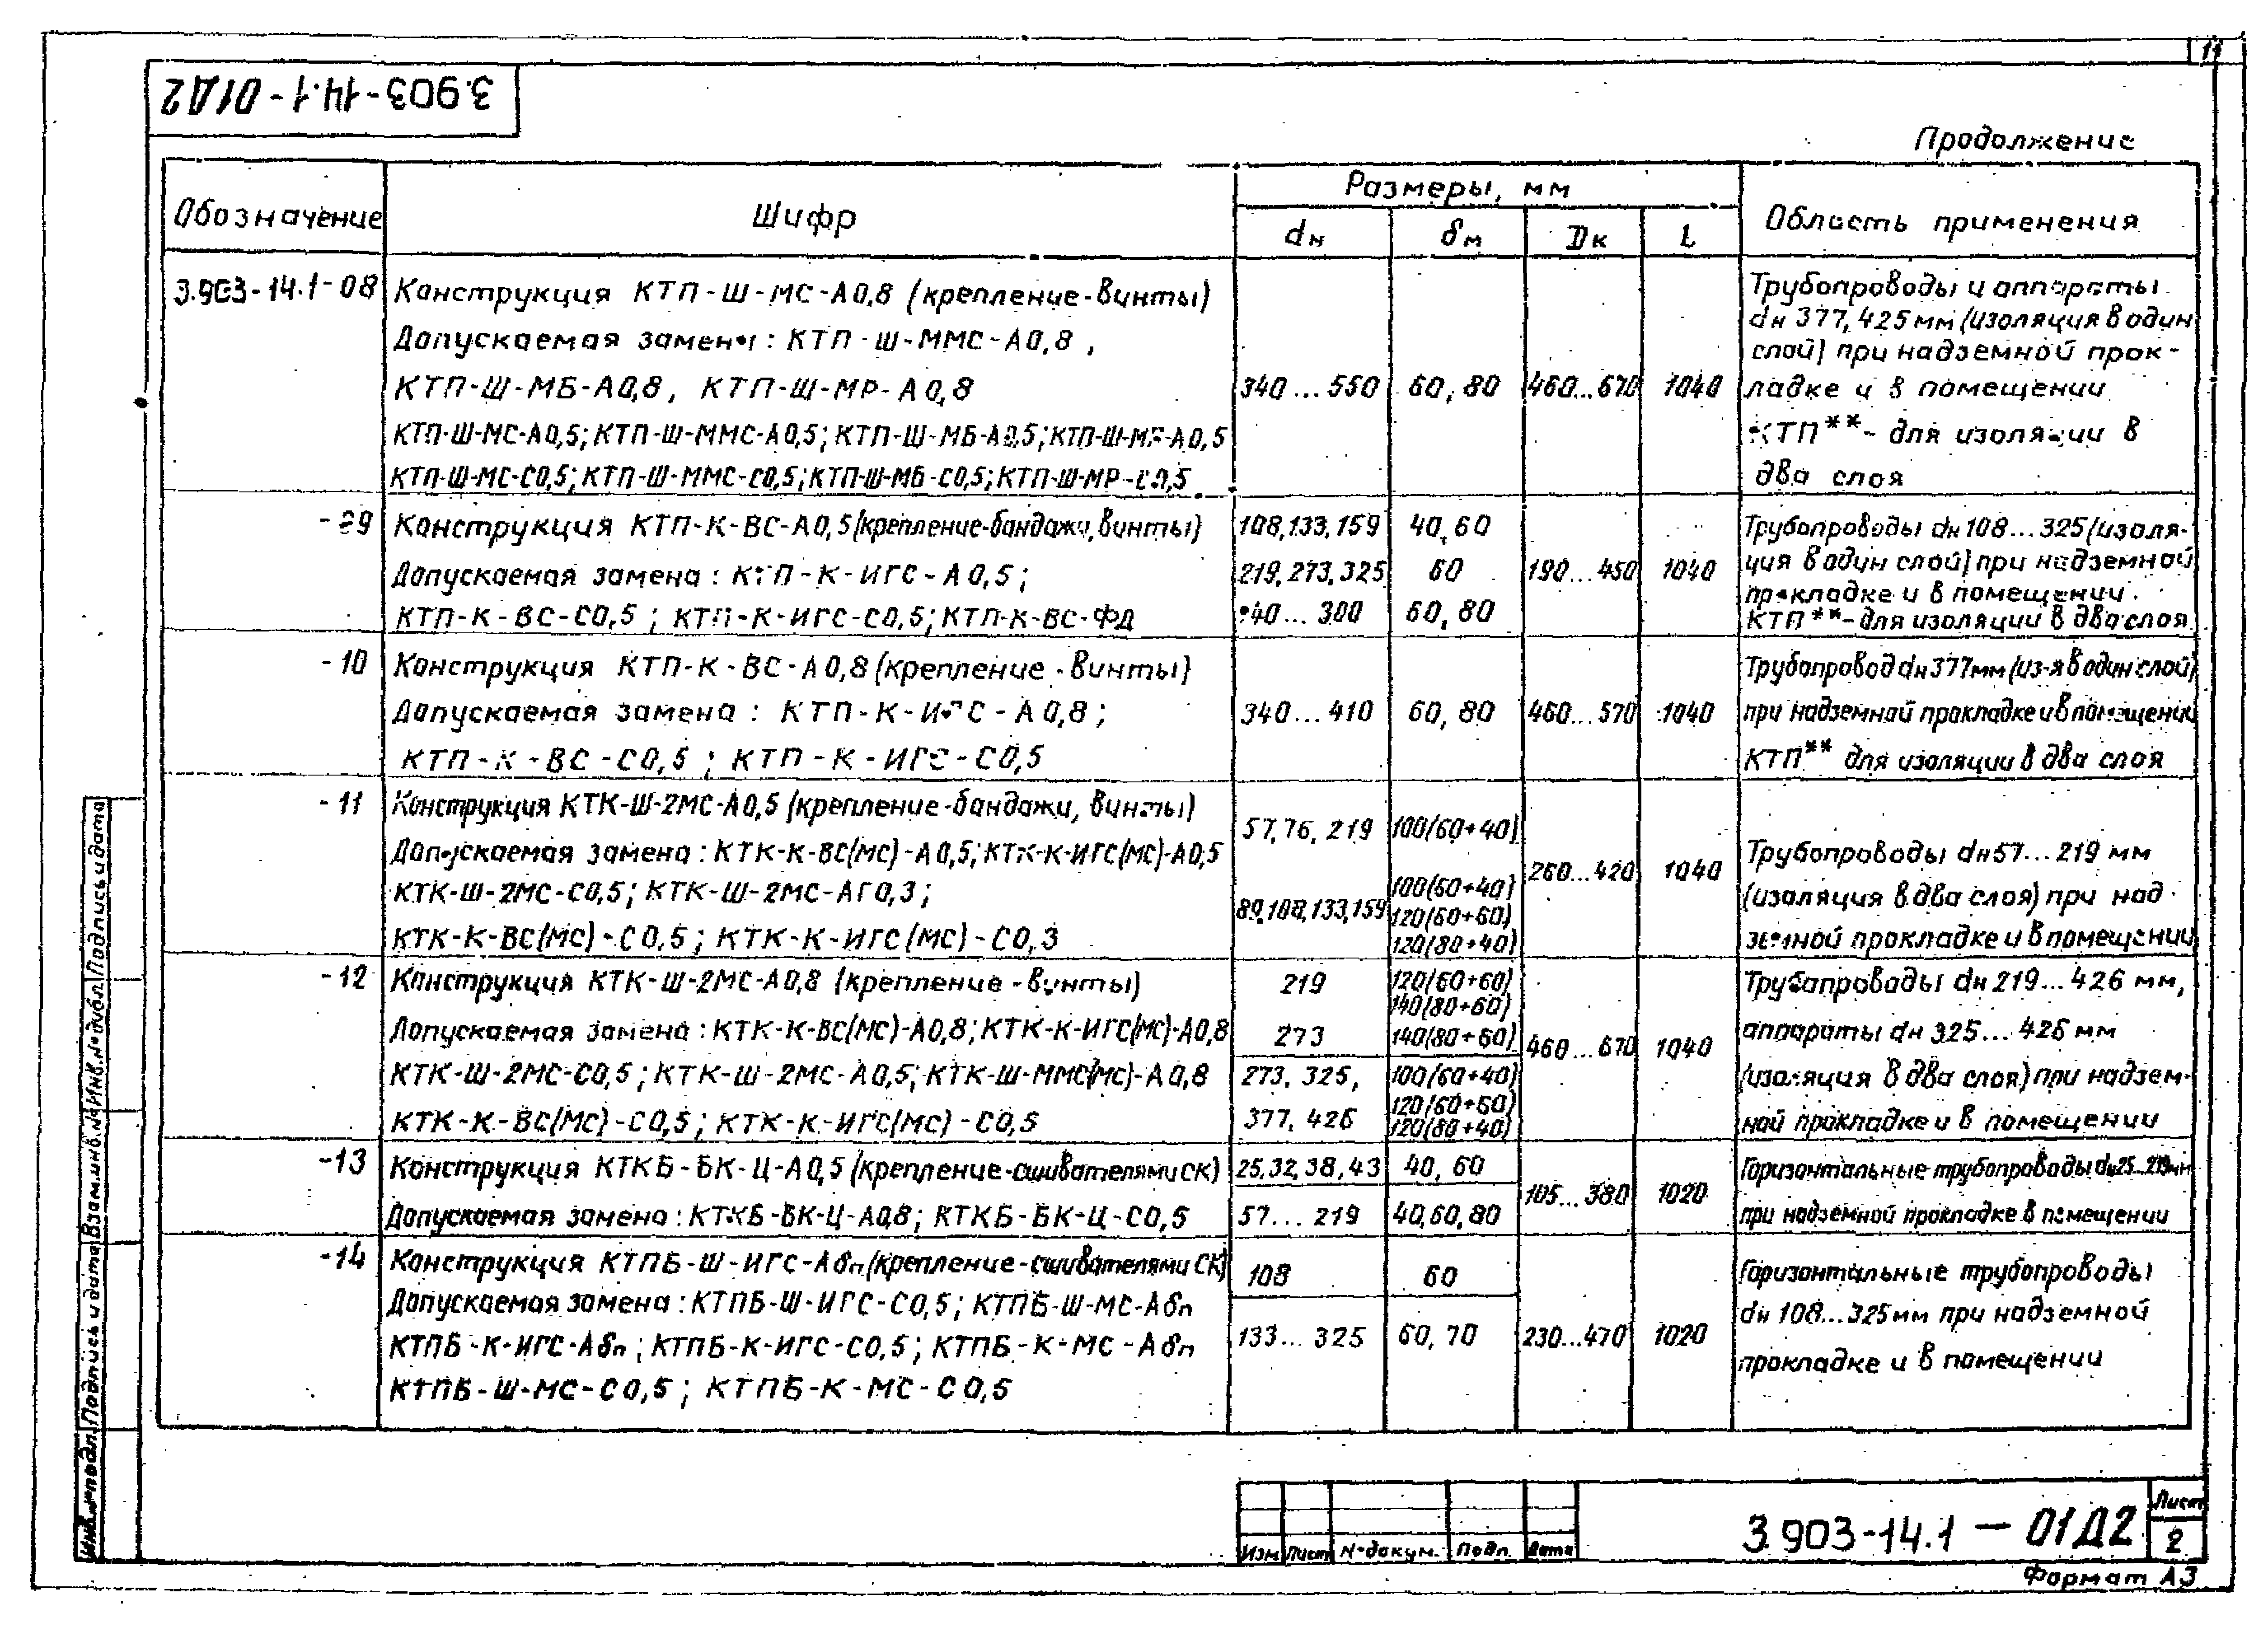 11
3.903-14.1-01Д2
Продолжение
Обозначение
Шифр
Размеры, мм
Область применения
dн
δм
Dк
L
3.903-14.1-08
Конструкция КТП-Ш-МС-А0,8 (крепление-винты)
Допускаемая замены: КТП-Ш-ММС-А0,8,
КТП-Ш-МБ-А0,8, КТП-Ш-МР-А0,8
КТП-Ш-МС-А0,5; КТП-Ш-ММС-А0,5; КТП-Ш-МБ-А0,5; КТП-Ш-МР-А0,5
КТП-Ш-МС-С0,5; КТП-Ш-ММС-С0,5; КТП-Ш-МБ-С0,5; КТП-Ш-МР-С0,5
340...550
60, 80
460...670
1040
Трубопроводы и аппараты
dн 377, 425 мм (изоляция в один
слой) при надземной прок-
ладке и в помещении
КТП**- для изоляции в
два слоя
-09
Конструкция КТП-К-ВС-А0,5 (крепление-бандажи, винты)
Допускаемая замена: КТП-К-ИГС-А0,5;
КТП-К-ВС-С0,5; КТП-К-ИГС-С0,5; КТП-К-ВС-ФД
108, 133, 159
40, 60
219, 273, 325
60
60, 80
190...450
1040
Трубопроводы dн 108...325 (изоля-
ция в один слой) при надземной
прокладке и в помещении.
КТП**-для изоляции в два слоя
-10
Конструкция КТП-К-ВС-А0,8 (крепление-винты)
Допускаемая замена: КТП-К-ИГС-А0,8;
КТП-К-ВС-С0,5; КТП-К-ИГС-С0,5
340...410
60, 80
460...570
1040
Трубопровод dн 377мм (из-я в один слой)
при надземной прокладке и в помещении
КТП** для изоляции в два слоя
-11
Конструкция КТК-Ш-2МС-А0,5 (крепление-бандажи, винты)
Допускаемая замена: КТК-К-ВС(МС)-А0,5; КТК-К-ИГС(МС)-А0,5
КТК-Ш-2МС-С0,5; КТК-Ш-2МС-АГ0,3;
КТК-К-ВС(МС)-С0,5; КТК-К-ИГС(МС)-С0,3
57, 76, 219
100(60+40)
89, 108, 133, 159
100(60+40)
120(60+60)
120(80+40)
260...420
1040
Трубопроводы dн 57...219 мм
(изоляция в два слоя) при над-
земной прокладке и в помещении
-12
Конструкция КТК-Ш-2МС-А0,8 (крепление-винты)
Допускаемая замена: КТК-К-ВС(МС)-А0,8; КТК-К-ИГС(МС)-А0,8
КТК-Ш-2МС-С0,5; КТК-Ш-2МС-А0,5; КТК-Ш-ММС(МС)-А0,8
КТК-К-ВС(МС)-С0,5; КТК-К-ИГС(МС)-С0,5
219
120(60+60)
140(80+60)
273
140(80+60)
273, 325,
377, 426
100(60+40)
120(60+60)
120(80+40)
460...670
1040
Трубопроводы dн 219...426 мм,
аппараты dн 325...426 мм
(изоляция в два слоя) при надзем-
ной прокладке и в помещении
-13
Конструкция КТКБ-БК-Ц-А0,5 (крепление-сшивателями СК)
Допускаемая замена: КТКБ-БК-Ц-А0,8; КТКБ-БК-Ц-С0,5
25, 32, 38, 43
40, 60
57...219
40, 60, 80
105...380
1020
Горизонтальные трубопроводы dн 25...219 мм
при надземной прокладке в помещении
-14
Конструкция КТПБ-Ш-ИГС-Абп (крепление-сшивателями СК)
Допускаемая замена: КТПБ-Ш-ИГС-С0,5; КТПБ-Ш-МС-Абп
КТПБ-К-ИГС-Абп; КТПБ-К-ИГС-С0,5; КТПБ-К-МС-Абп
КТПБ-Ш-МС-С0,5; КТПБ-К-МС-С0,5
108
60
133...325
60, 70
230...470
1020
Горизонтальные трубопроводы
dн 108...325мм при надземной
прокладке и в помещении
Инв.№подл.
Подпись и дата
Взам.инв.№
Инв.№дубл.
Подпись и дата
Изм
Лист
№докум.
Подп.
Дата
3.903-14.1 — 01Д2
Лист
2
Формат А3